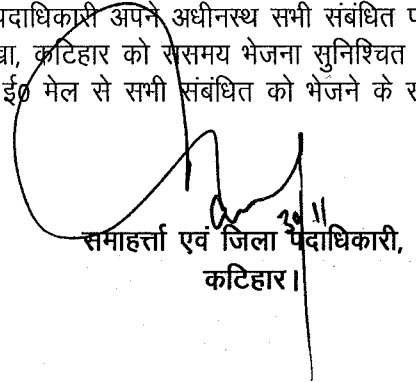 पदाधिकारी अपने अधीनस्थ सभी संबंधित
कटिहार को ससमय भेजना सुनिश्चित
ई0 मेल से सभी संबंधित को भेजने के
30/11
समाहर्त्ता एवं जिला पदाधिकारी,
कटिहार।